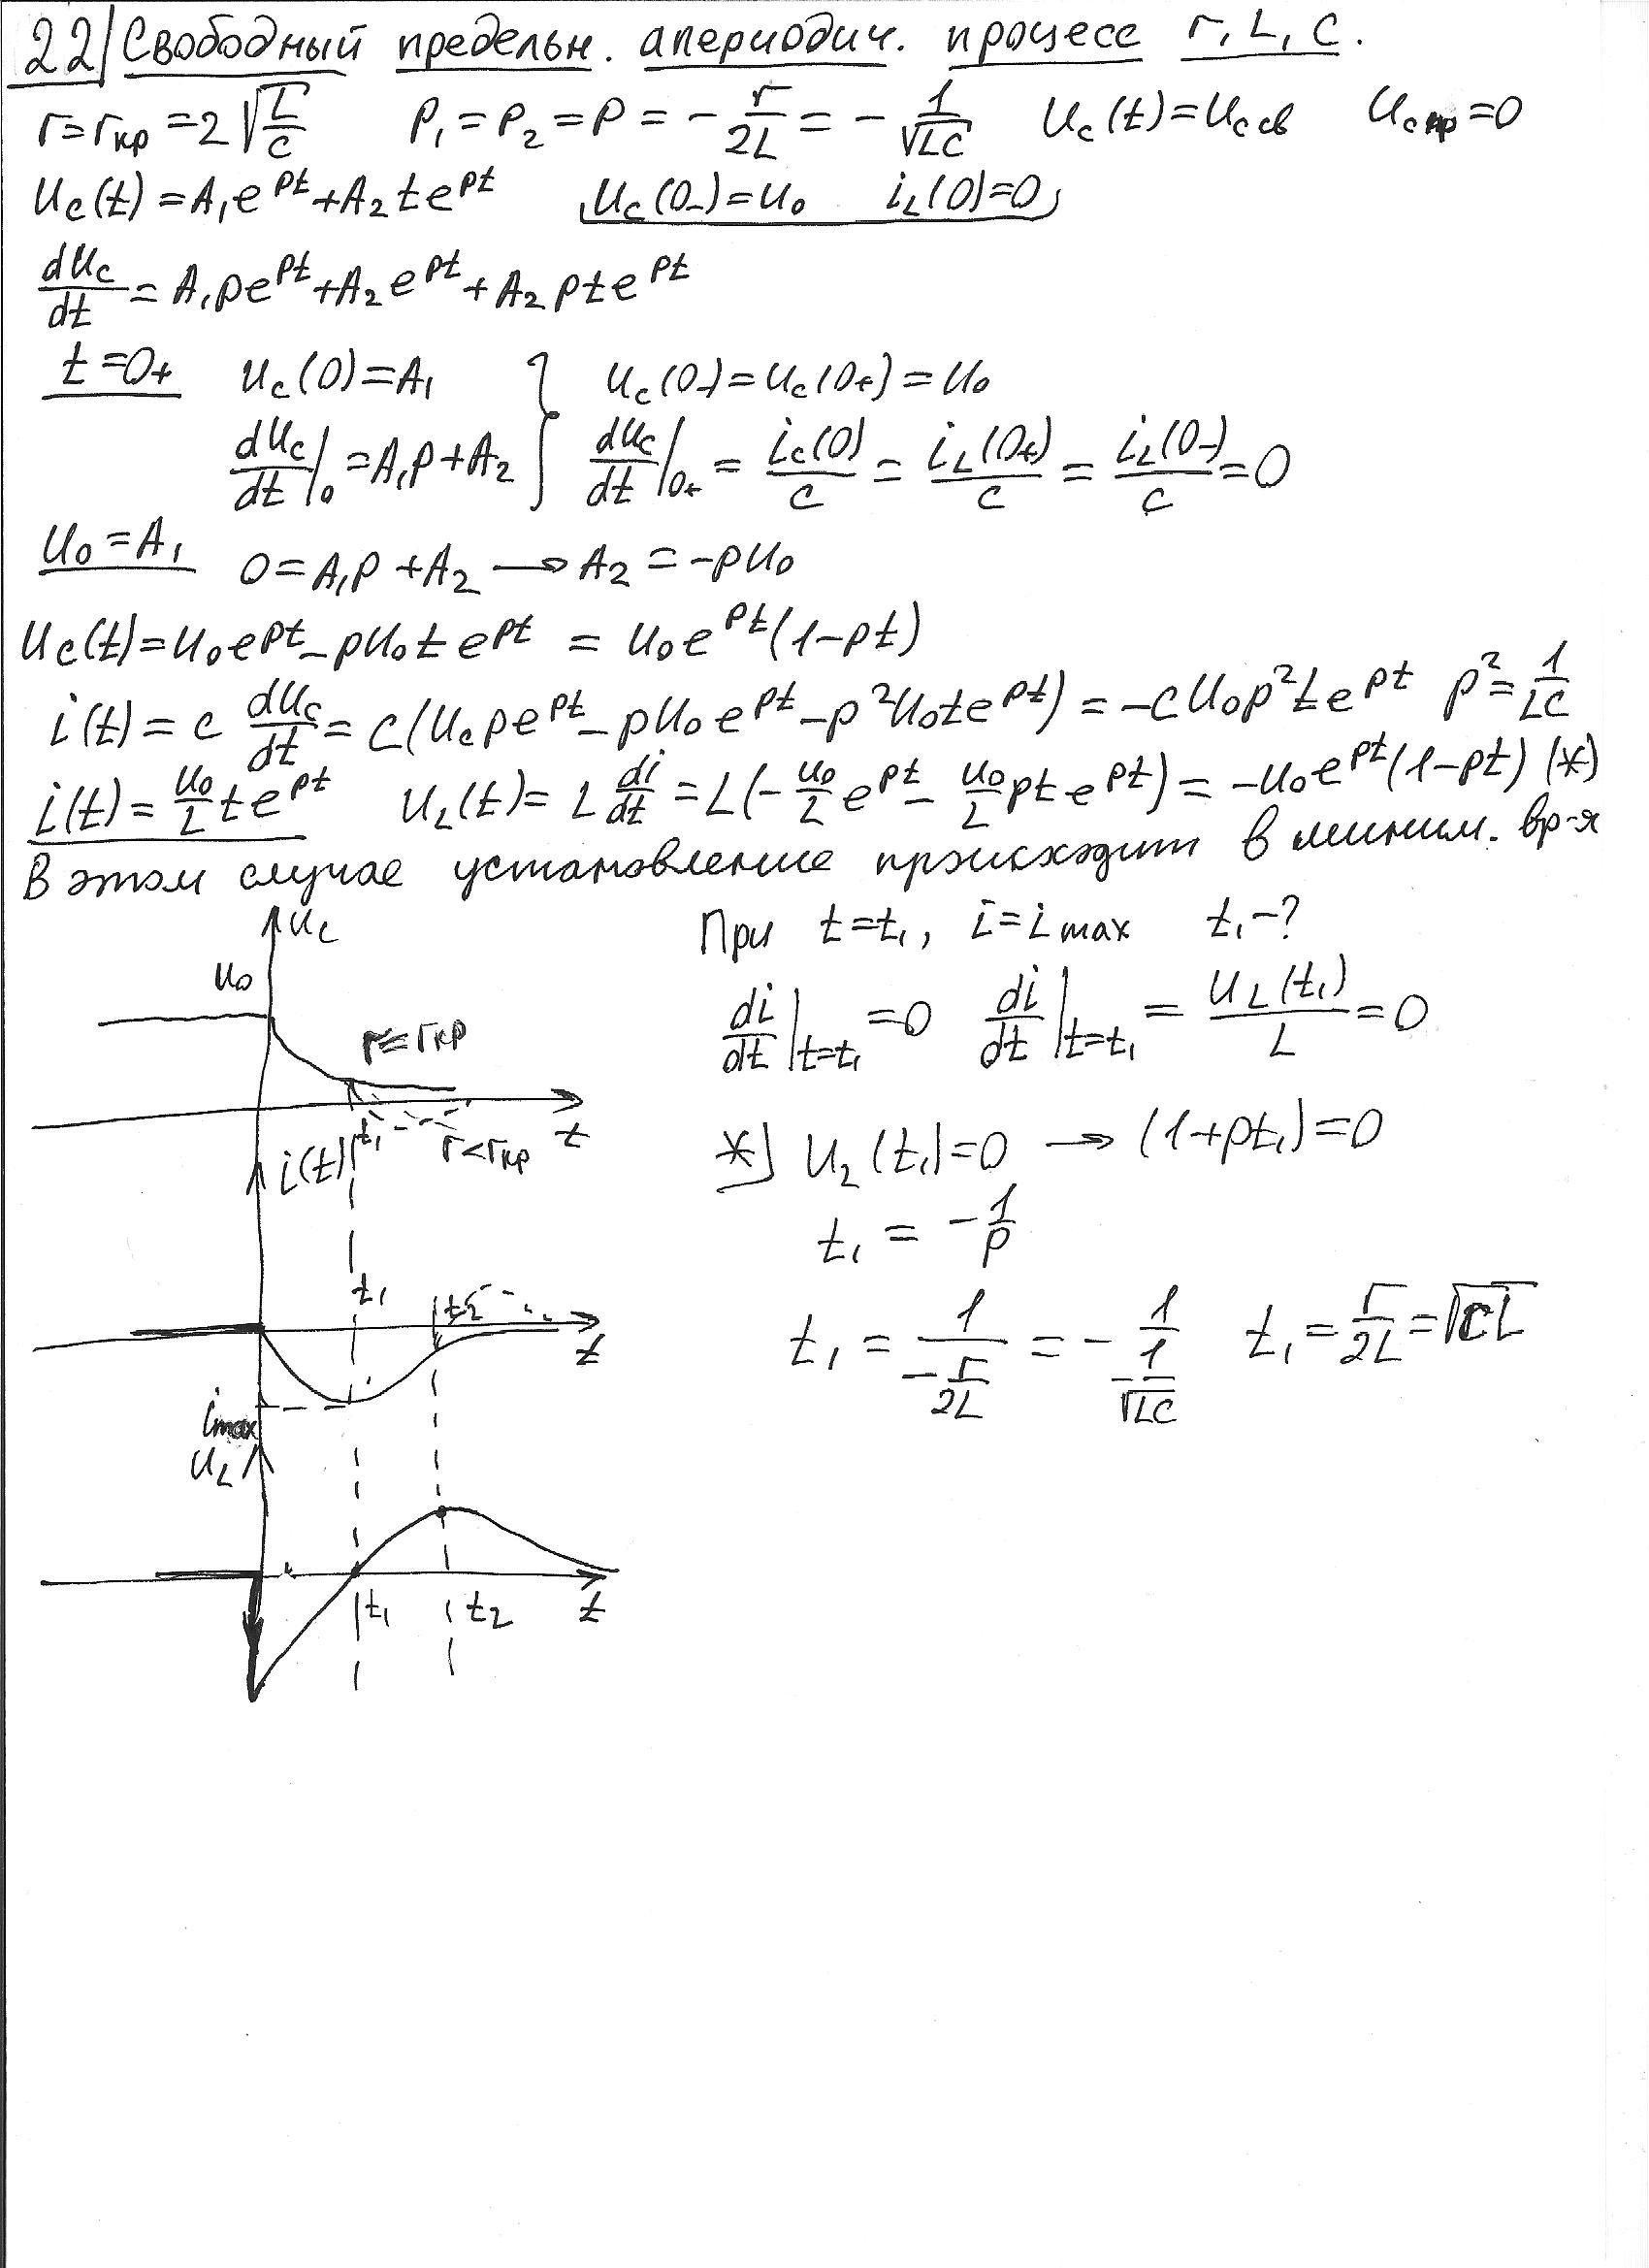 22) Свободный предельн. апериодич. процесс r, L, C.
r = r_кр = 2√(L/C)   P₁ = P₂ = P = -r/2L = -1/√LC   U_C(t) = U_C св   U_C пр = 0
U_C(t) = A₁e^pt + A₂te^pt   U_C(0-) = U₀   i_L(0) = 0
dU_C/dt = A₁pe^pt + A₂e^pt + A₂pte^pt
t = 0+   U_C(0) = A₁ }   U_C(0-) = U_C(0+) = U₀
dU_C/dt|₀ = A₁p + A₂ }   dU_C/dt|₀₊ = i_C(0)/C = i_L(0+)/C = i_L(0-)/C = 0
U₀ = A₁   0 = A₁p + A₂ → A₂ = -pU₀
U_C(t) = U₀e^pt - pU₀te^pt = U₀e^pt(1-pt)
i(t) = C dU_C/dt = C(U_C pe^pt - pU₀e^pt - p²U₀te^pt) = -CU₀p²te^pt   p² = 1/LC
i(t) = U₀/L te^pt   U_L(t) = L di/dt = L(-U₀/L e^pt - U₀/L pte^pt) = -U₀e^pt(1-pt) (*)
В этом случае установление происходит в миним. вр-я
U_C
U₀
r = r_кр
t₁
r < r_кр
t
i(t)
t₁
t₂
t
i_max
U_L
t₁
t₂
t
При t = t₁, i = i_max   t₁ - ?
di/dt|t=t₁ = 0   di/dt|t=t₁ = U_L(t₁)/L = 0
*) U_L(t₁) = 0 → (1+pt₁) = 0
t₁ = -1/p
t₁ = 1/(-r/2L) = -1/(-1/√LC)   t₁ = r/2L = √CL